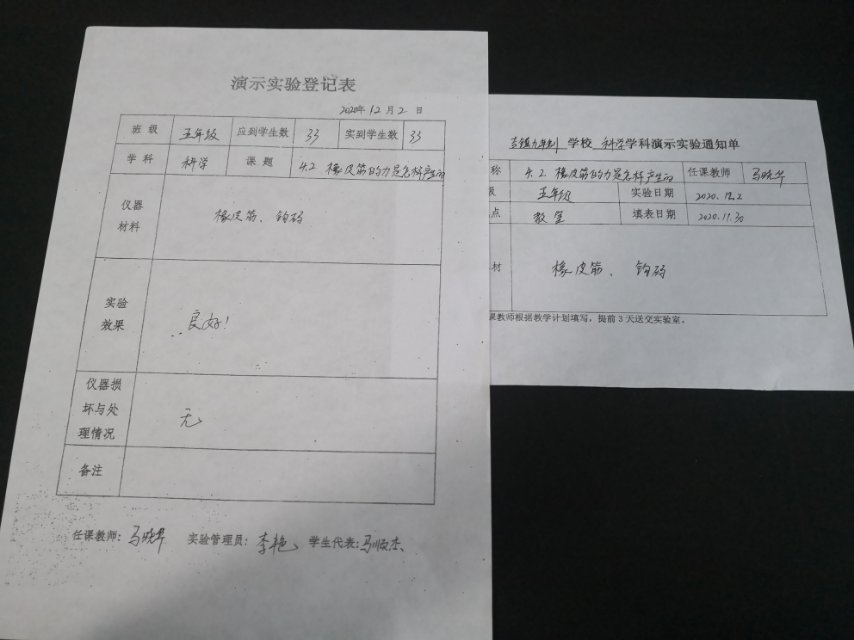 演示实验登记表
2020年12月2日
班级 五年级 应到学生数 33 实到学生数 33
学科 科学 课题 4.2 橡皮筋的力是怎样产生的
仪器
材料
橡皮筋、钩码
实验
效果
良好!
仪器损
坏与处
理情况
无
备注
任课教师: 马晓华 实验管理员: 李艳 学生代表: 马顺杰
学校 科学学科演示实验通知单
称 4.2. 橡皮筋的力是怎样产生的 任课教师 马晓华
级 五年级 实验日期 2020.12.2
点 教室 填表日期 2020.11.30
材 橡皮筋、钩码
课教师根据教学计划填写,提前3天送交实验室。